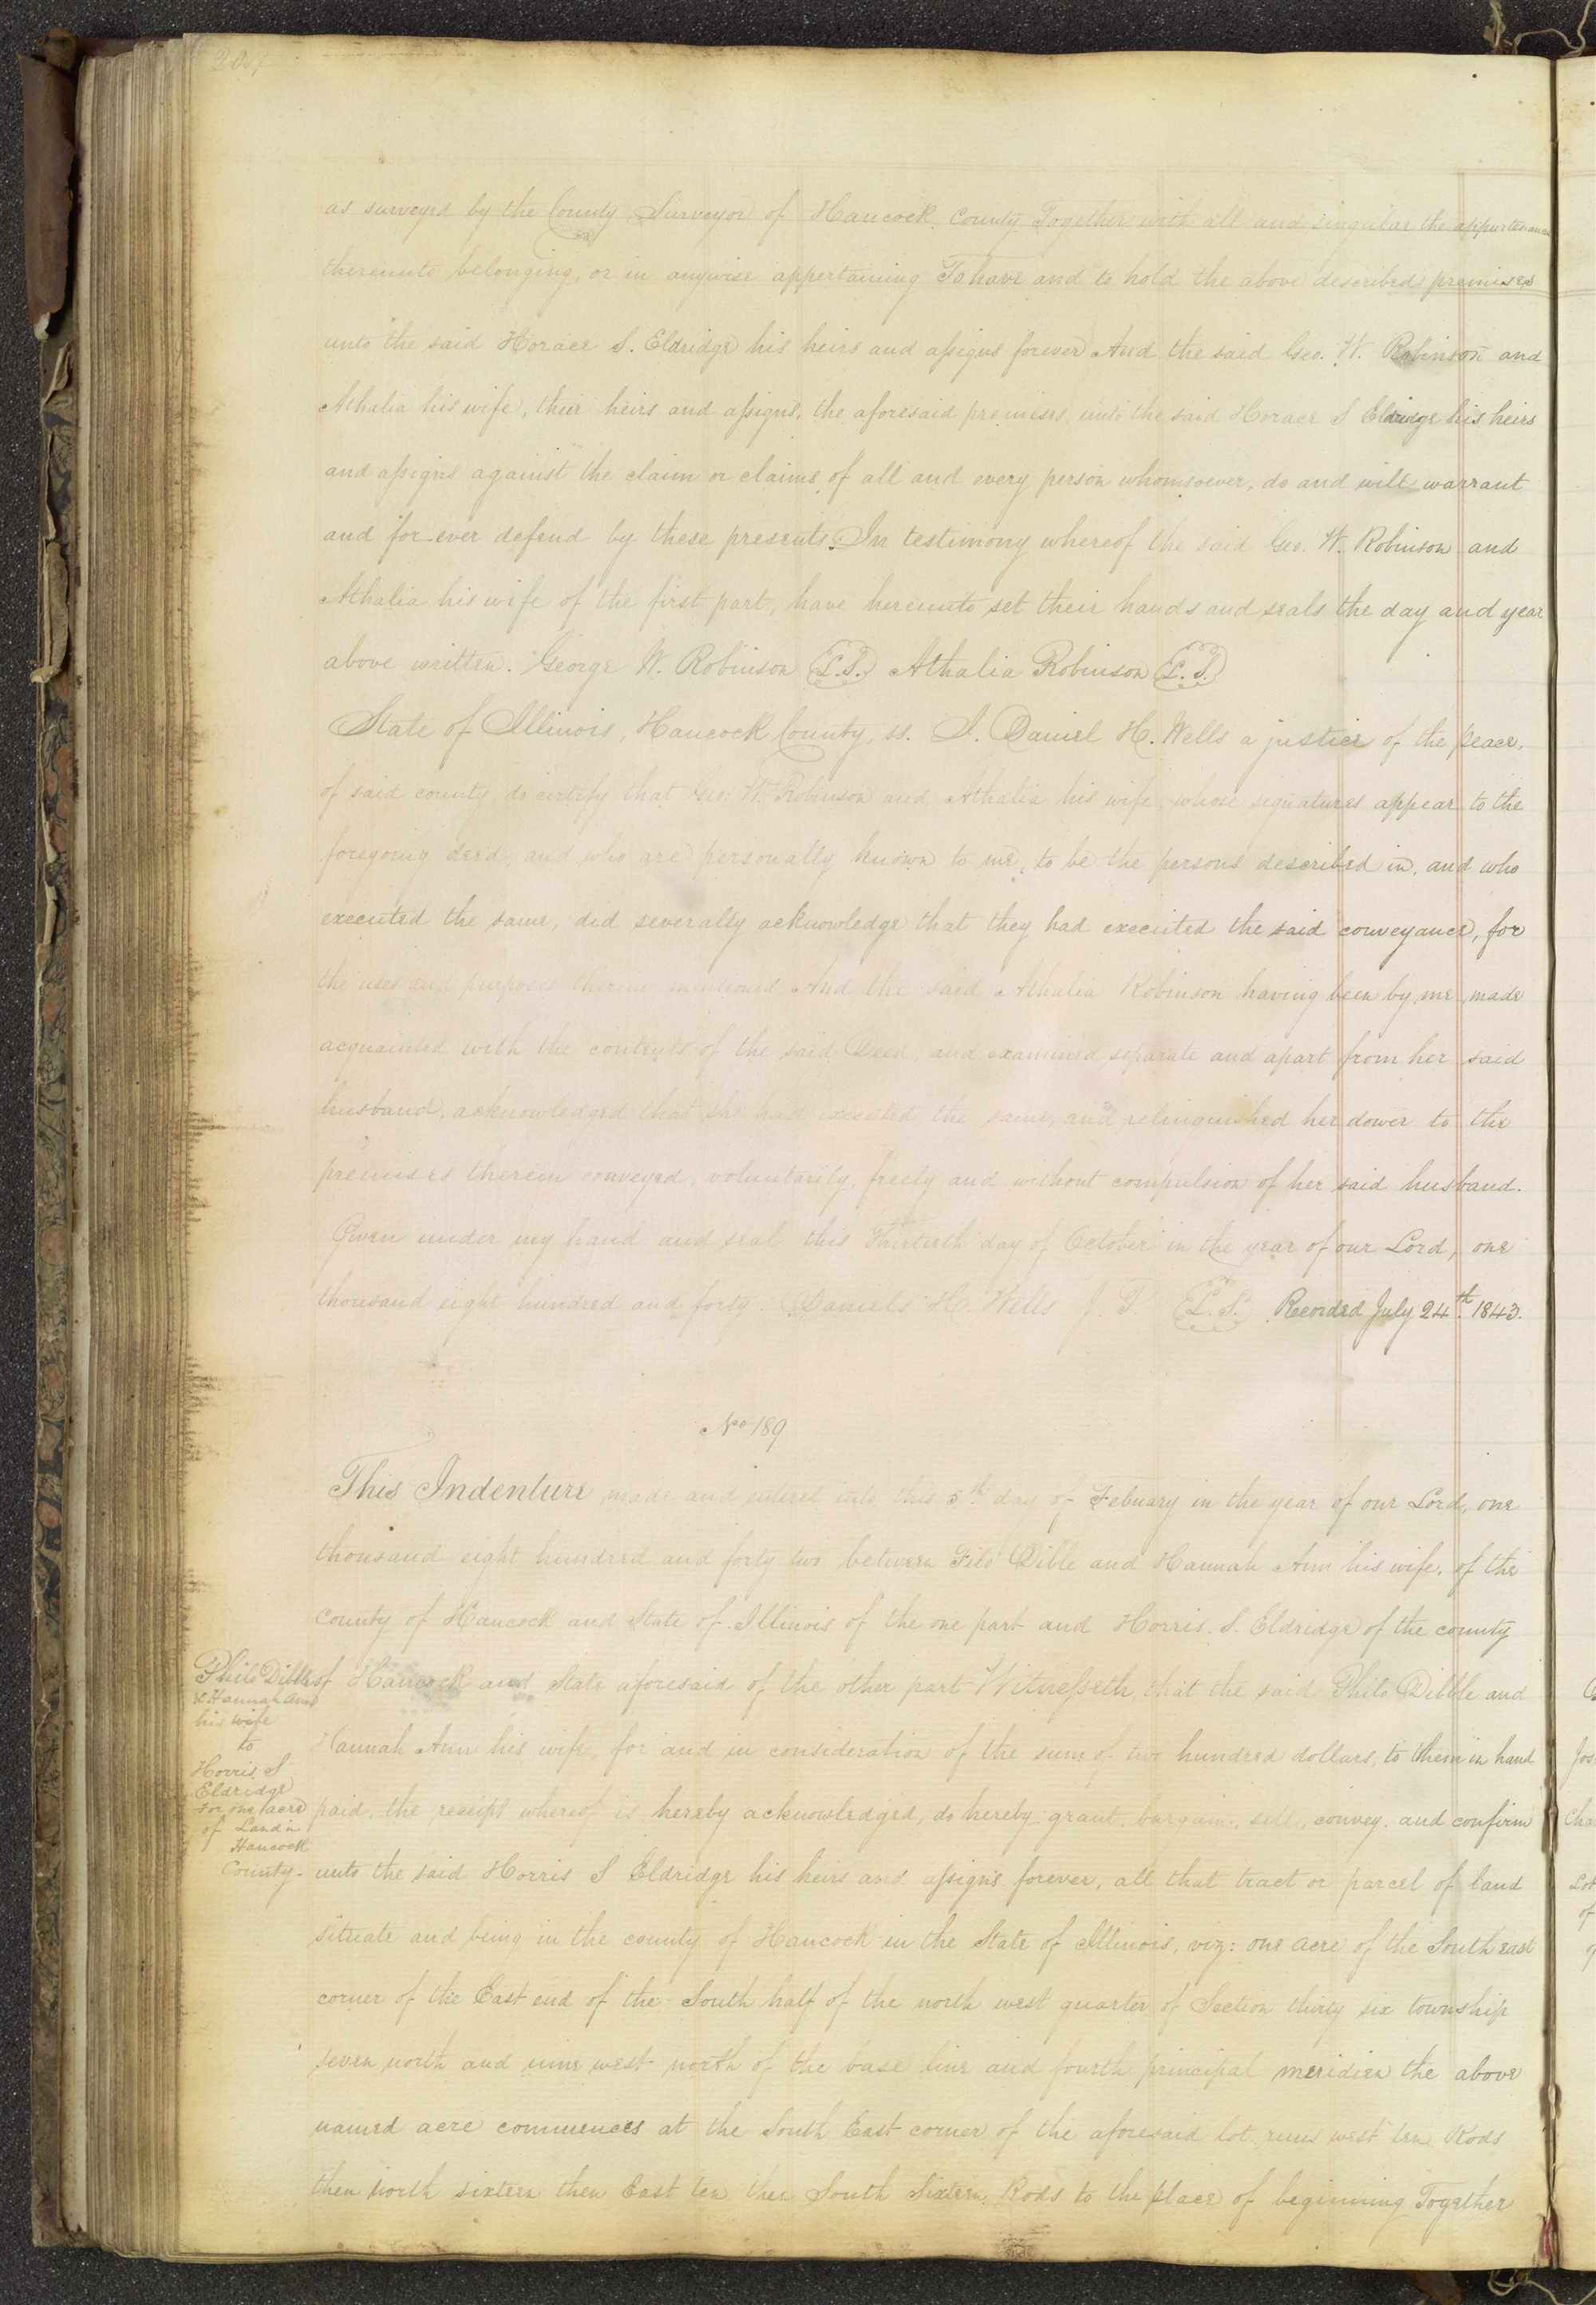 204
as surveyed by the County Surveyor of Hancock County Together with all and singular the appurtenances
thereunto belonging, or in anywise appertaining To have and to hold the above described premises
unto the said Horace S. Eldridge his heirs and assigns forever And the said Geo. W. Robinson and
Athalia his wife, their heirs and assigns, the aforesaid premises, unto the said Horace S Eldridge his heirs
and assigns against the claim or claims of all and every person whomsoever, do and will warrant
and for ever defend by these presents. In testimony whereof the said Geo. W. Robinson and
Athalia his wife of the first part, have hereunto set their hands and seals the day and year
above written. George W. Robinson L.S. Athalia Robinson L.S.
State of Illinois, Hancock County, ss. I. Daniel H. Wells a justice of the peace,
of said county, do certify that Geo. W. Robinson and Athalia his wife, whose signatures appear to the
foregoing deed, and who are personally known to me, to be the persons described in, and who
executed the same, did severally acknowledge that they had executed the said conveyance, for
the uses and purposes therein mentioned And the said Athalia Robinson having been by me made
acquainted with the contents of the said Deed, and examined separate and apart from her said
husband, acknowledged that she had executed the same, and relinquished her dower to the
premises therein conveyed, voluntarily, freely and without compulsion of her said husband.
Given under my hand and seal this Thirtieth day of October in the year of our Lord, one
thousand eight hundred and forty Daniels H. Wells J. P. L.S. Recorded July 24th. 1843.
No 189
This Indenture made and entered into this 5th day of Febuary in the year of our Lord, one
thousand eight hundred and forty two between Filo Dible and Hannah Ann his wife, of the
County of Hancock and State of Illinois of the one part and Horris. S. Eldridge of the county
of Hancock and State aforesaid of the other part Witnesseth, that the said Philo Dibble and
Hannah Ann his wife, for and in consideration of the sum of two hundred dollars, to them in hand
paid, the receipt whereof is hereby acknowledged, do hereby grant, bargain, sell, convey, and confirm
unto the said Horris S Eldridge his heirs and assigns forever, all that tract or parcel of land
situate and being in the county of Hancock in the State of Illinois, viz: one acre of the South east
corner of the East end of the South half of the north west quarter of Section thirty six township
seven north and nine west north of the base line and fourth principal meridien the above
named acre commences at the South East corner of the aforesaid lot runs west ten Rods
then north sixteen then East ten then South Sixteen Rods to the place of beginning Together
Philo Dibble
& Hannah Ann
his wife
to
Horris S
Eldridge
For one acre
of Land in
Hancock
County-
Jos.
Cha
Lot
of